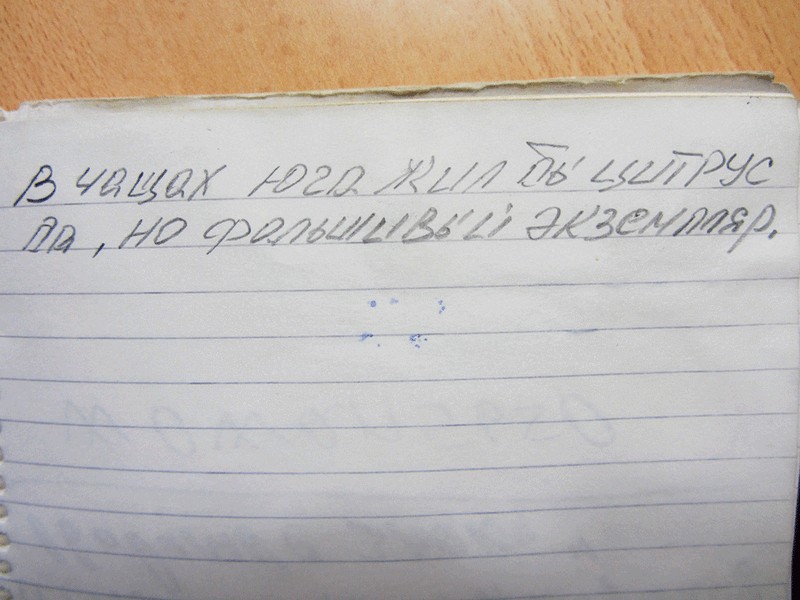 В чащах юга жил бы цитрус
да, но фальшивый экземпляр.